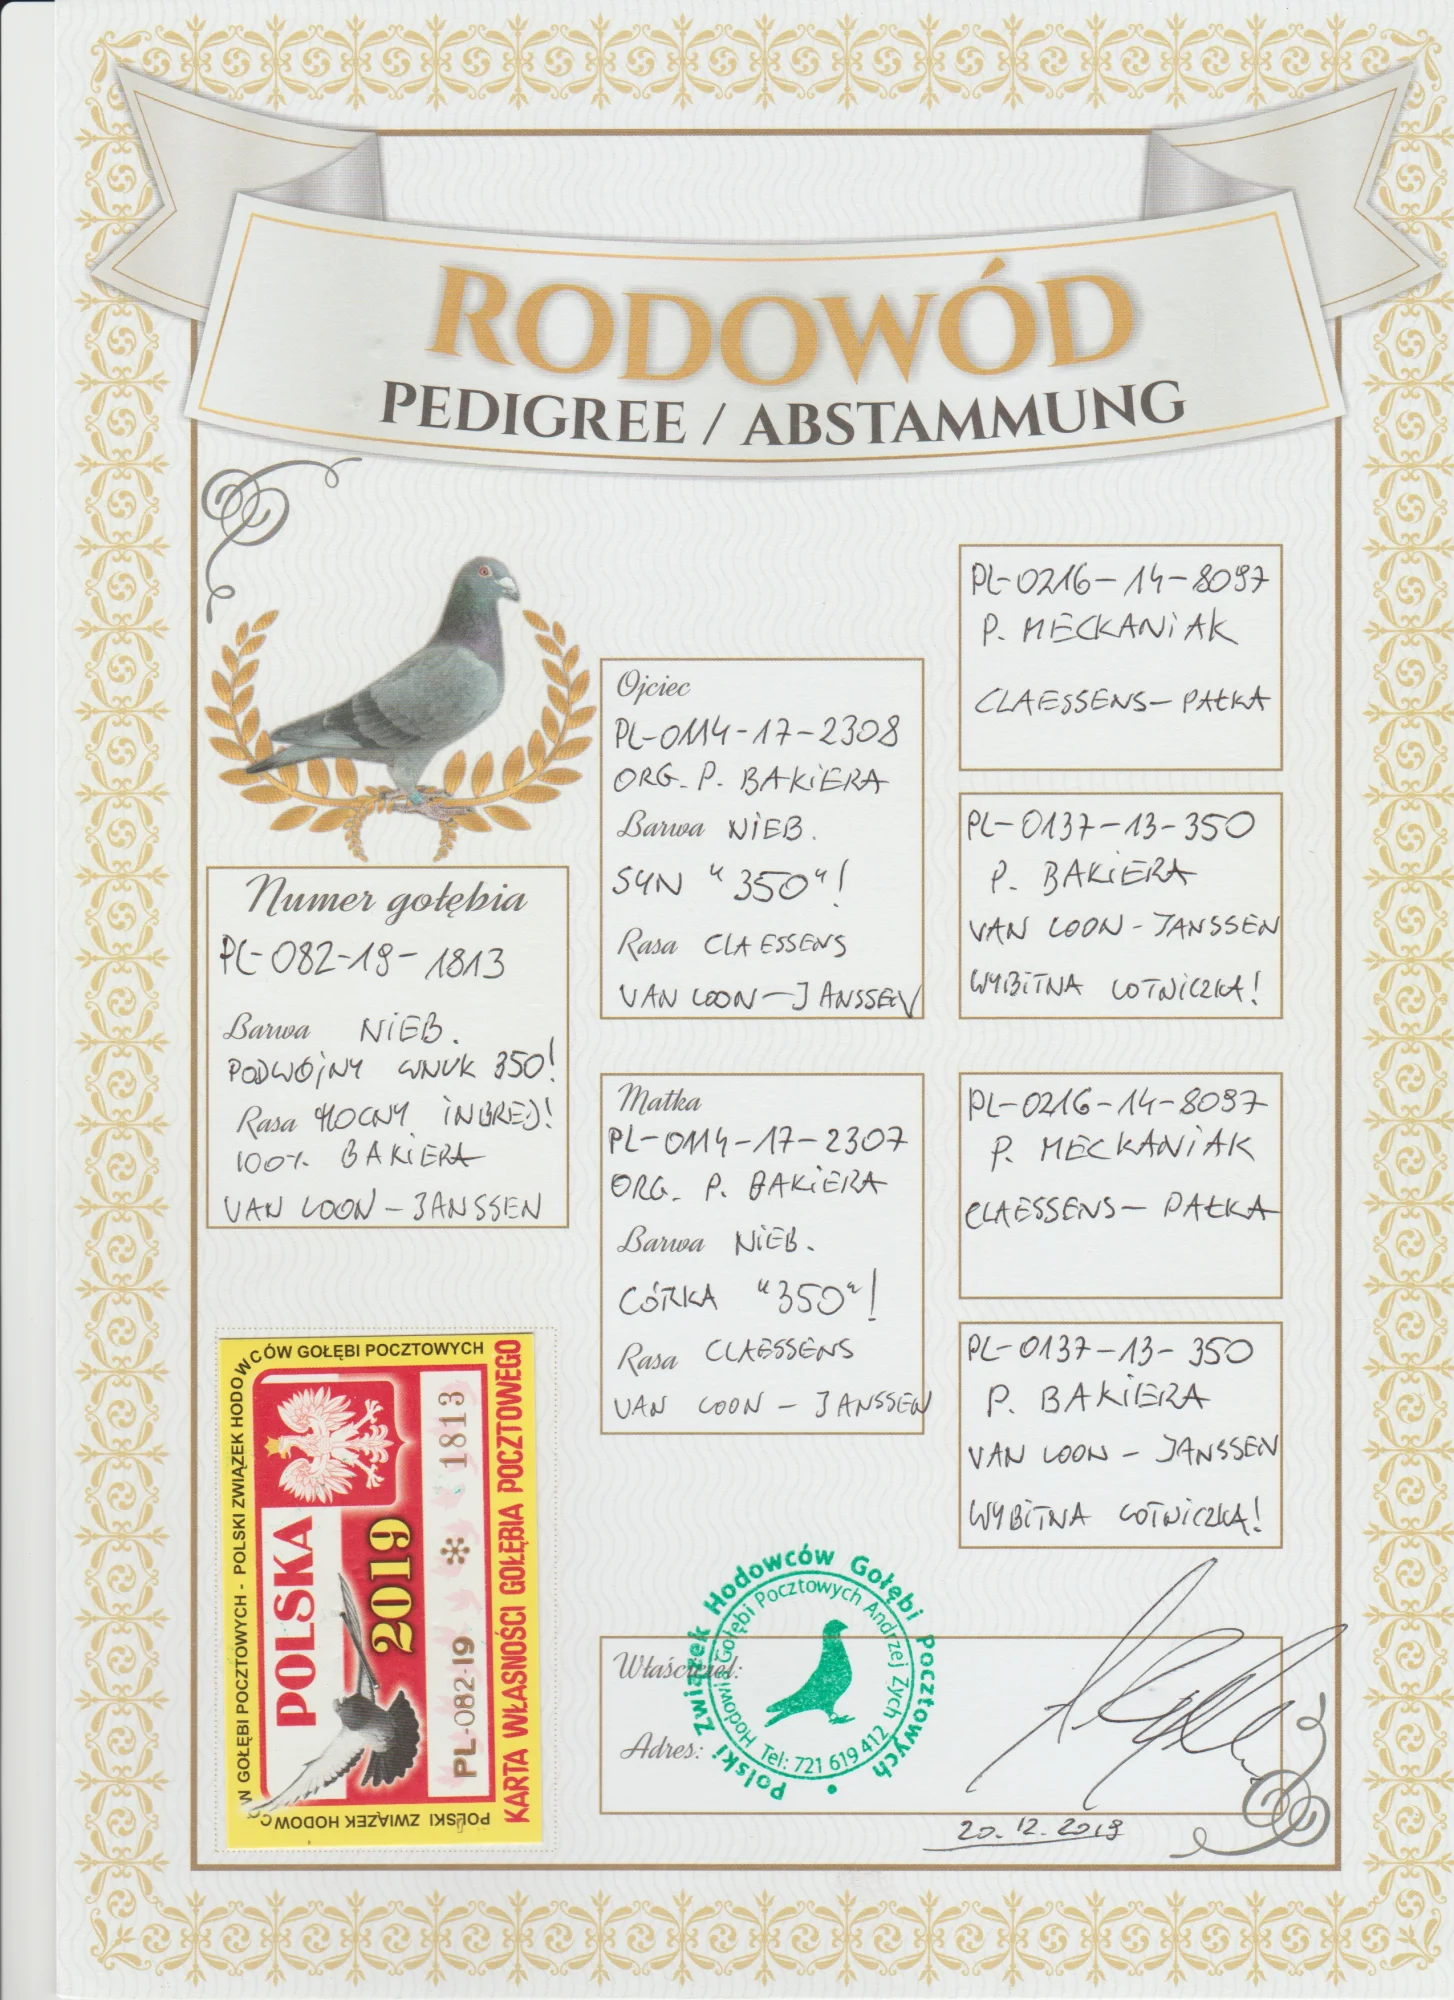 RODOWÓD
PEDIGREE / ABSTAMMUNG
Numer gołębia
PL-082-19-1813
Barwa NIEB.
PODWÓJNY WNUK 350!
Rasa MOCNY INBRED!
100% BAKIERA
VAN LOON - JANSSEN
Ojciec
PL-0114-17-2308
ORG. P. BAKIERA
Barwa NIEB.
SYN "350"!
Rasa CLAESSENS
VAN LOON - JANSSEN
Matka
PL-0114-17-2307
ORG. P. BAKIERA
Barwa NIEB.
CÓRKA "350"!
Rasa CLAESSENS
VAN LOON - JANSSEN
PL-0216-14-8097
P. MECKANIAK
CLAESSENS - PAŁKA
PL-0137-13-350
P. BAKIERA
VAN LOON - JANSSEN
WYBITNA LOTNICZKA!
PL-0216-14-8097
P. MECKANIAK
CLAESSENS - PAŁKA
PL-0137-13-350
P. BAKIERA
VAN LOON - JANSSEN
WYBITNA LOTNICZKA!
W GOŁĘBI POCZTOWYCH - POLSKI ZWIĄZEK HODOWCÓW GOŁĘBI POCZTOWYCH
POLSKI ZWIĄZEK HODOWCÓW
POLSKA
2019
PL-082-19 * 1813
KARTA WŁASNOŚCI GOŁĘBIA POCZTOWEGO
Właściciel:
Adres:
Polski Związek Hodowców Gołębi Pocztowych
Hodowla Gołębi Pocztowych Andrzej Zych
Tel: 721 619 412
20.12.2019